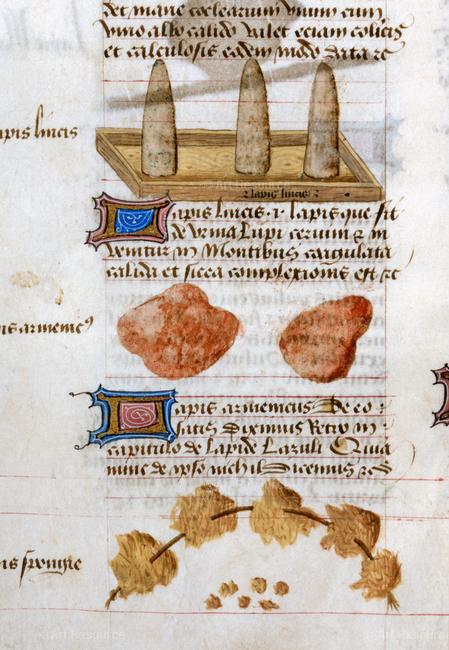 det mane coclearium unum cum
vino albo calido valet eciam colicis
et calculosis eodem modo data
apis lincis
lapis lincis
apis lincis .i. lapis que fit
de vrina Lupi ceruini
venitur in Montibus coagulata
calida et sicca complexionis est
apis armenicus De eo
satis Diximus
capitulo de Lapide Lazuli
nunc de ipso nichil Dicemus
is spongie
Art Resource